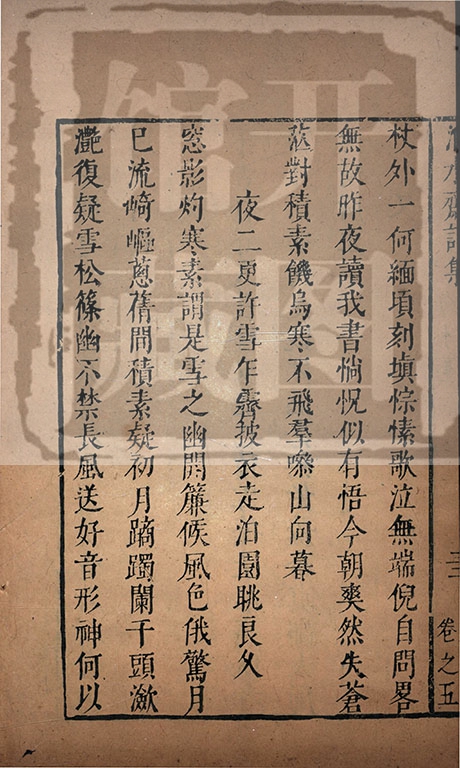 杖外一何緬頃刻塡悰愫歌泣無端倪自問畧
無故昨夜讀我書惝怳似有悟今朝爽然失蒼
對積素饑烏寒不飛羣噪山向暮
夜二更許雪乍霽披衣走泊園眺良久
窓影灼寒素謂是雪之幽開簾候風色俄驚月
巳流崎嶇蔥蒨間積素疑初月蹢躅闌干頭瀲
灔復疑雪松篠幽不禁長風送好音形神何以
卷之五